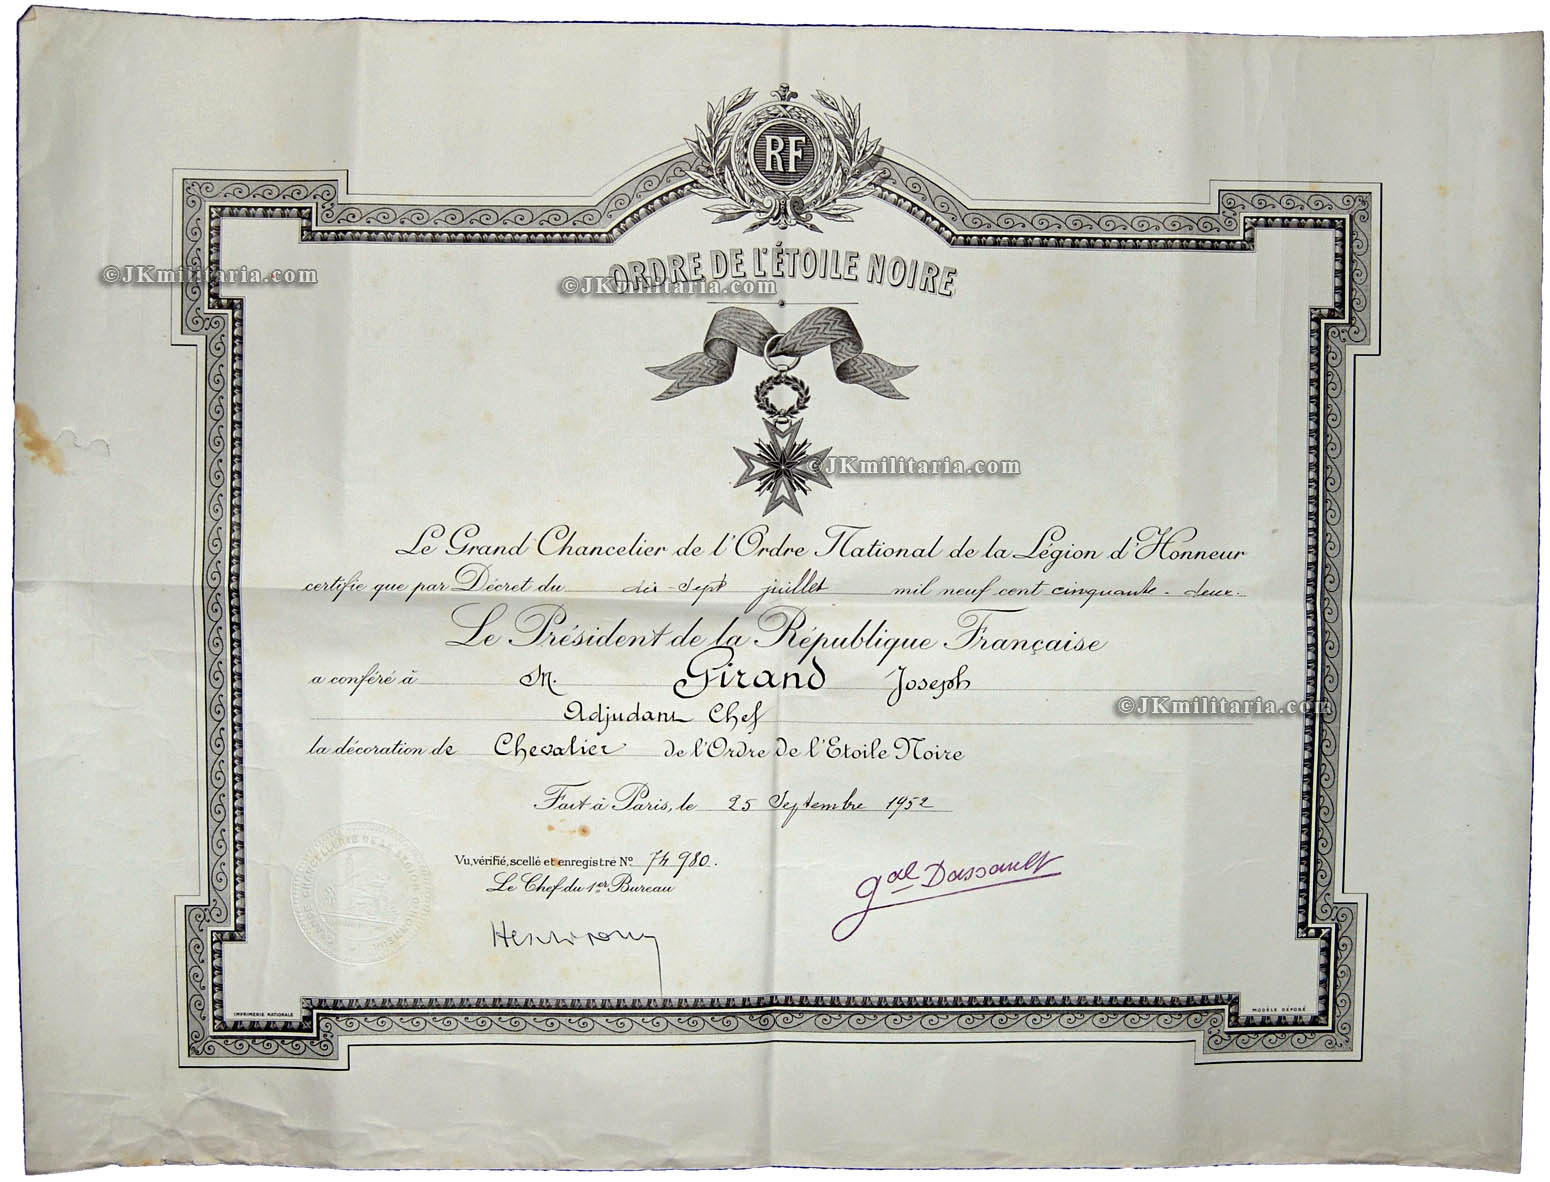 RF
ORDRE DE L'ÉTOILE NOIRE
©JKmilitaria.com
©JKmilitaria.com
©JKmilitaria.com
Le Grand Chancelier de l'Ordre National de la Légion d'Honneur
certifie que par Décret du dix-sept juillet mil neuf cent cinquante-deux.
Le Président de la République Française
a conféré à M. Girand Joseph
©JKmilitaria.com
Adjudant Chef
la décoration de Chevalier de l'Ordre de l'Etoile Noire
Fait à Paris, le 25 Septembre 1952
Vu, vérifié, scellé et enregistré No 74 980.
Le Chef du 1er Bureau
gal Dassault
GRANDE CHANCELLERIE DE LA LÉGION D'HONNEUR
IMPRIMERIE NATIONALE
MODÈLE DÉPOSÉ